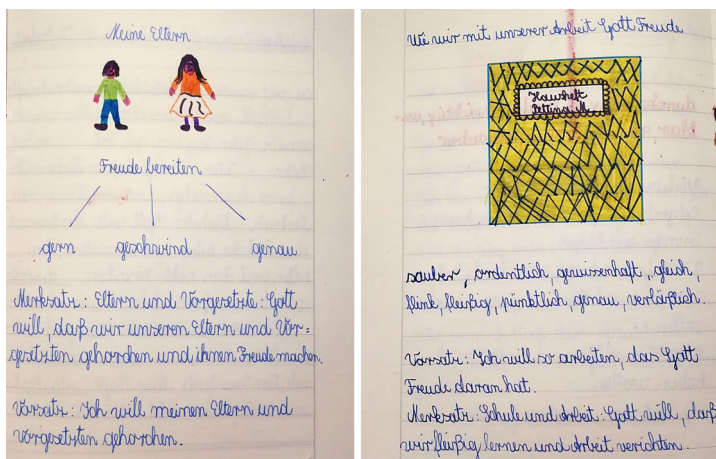 Meine Eltern
Freude bereiten
gern geschwind genau
Merksatz: Eltern und Vorgesetzte: Gott
will, daß wir unseren Eltern und Vor=
gesetzten gehorchen und ihnen Freude machen.
Vorsatz: Ich will meinen Eltern und
Vorgesetzten gehorchen.
Wie wir mit unserer Arbeit Gott Freude
Hausheft
Bettina M.
sauber, ordentlich, gewissenhaft, gleich,
flink, fleißig, pünktlich, genau, verläßlich.
Vorsatz: Ich will so arbeiten, das Gott
Freude daran hat.
Merksatz: Schule und Arbeit: Gott will, daß
wir fleißig lernen und Arbeit verichten.